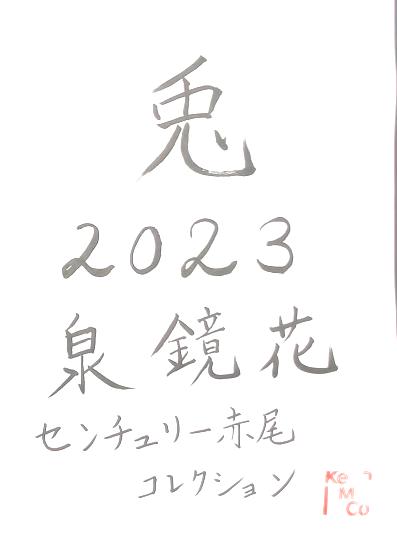 兎
2023
泉鏡花
センチュリー赤尾
コレクション
Ke
M
Co